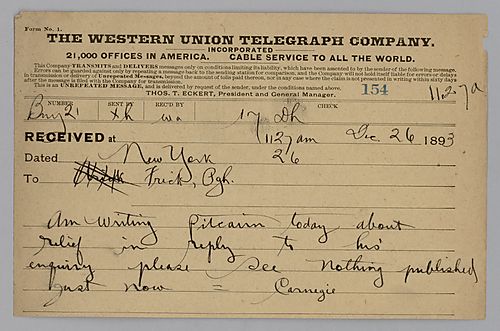 Form No. 1.
THE WESTERN UNION TELEGRAPH COMPANY.
INCORPORATED
21,000 OFFICES IN AMERICA. CABLE SERVICE TO ALL THE WORLD.
This Company TRANSMITS and DELIVERS messages only on conditions limiting its liability, which have been assented to by the sender of the following message.
Errors can be guarded against only by repeating a message back to the sending station for comparison, and the Company will not hold itself liable for errors or delays
in transmission or delivery of Unrepeated Messages, beyond the amount of tolls paid thereon, nor in any case where the claim is not presented in writing within sixty days
after the message is filed with the Company for transmission.
This is an UNREPEATED MESSAGE, and is delivered by request of the sender, under the conditions named above.
154
THOS. T. ECKERT, President and General Manager.
NUMBER SENT BY REC'D BY CHECK
21 wa 17 Dh
RECEIVED at 1127am Dec. 26 1893
Dated New York 26
To Frick, Pgh.
Am writing Pitcairn today about
relief in reply to his
enquiry please see nothing published
just now = Carnegie